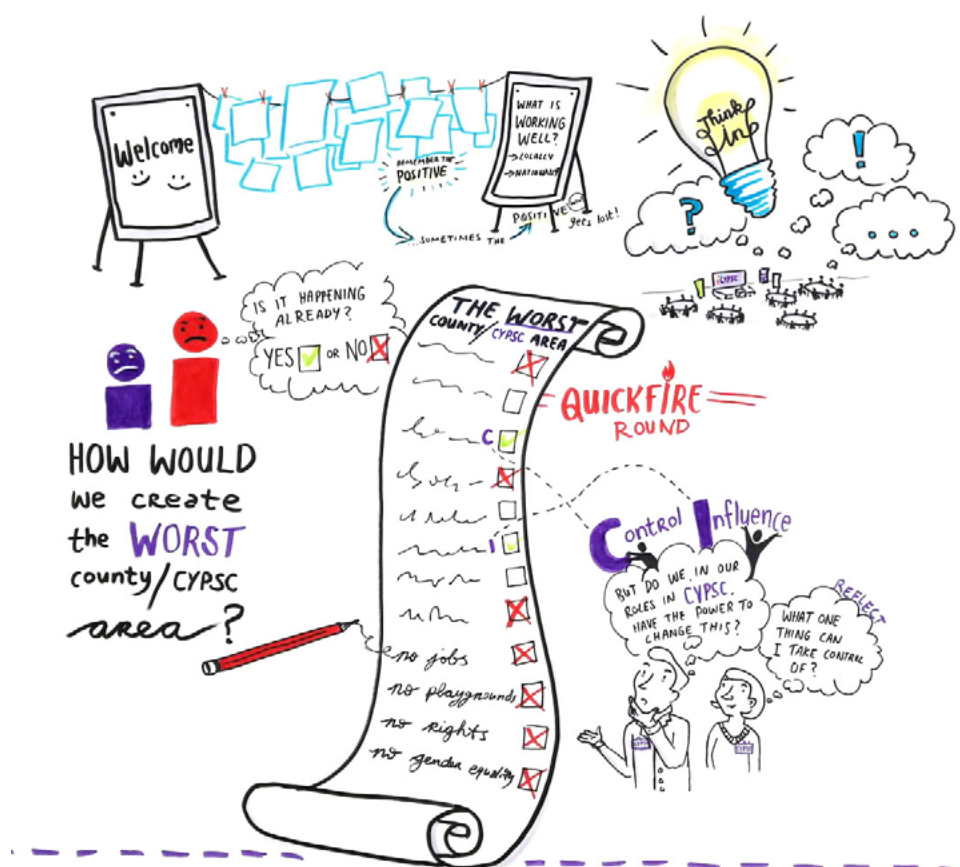 Welcome
REMEMBER THE
POSITIVE
WHAT IS
WORKING
WELL?
→LOCALLY
→NATIONALLY
...SOMETIMES THE
POSITIVE
gets lost!
Think
in
?
!
...
CYPSC
IS IT HAPPENING
ALREADY?
YES OR NO
HOW WOULD
we create
the WORST
county/CYPSC
area?
THE WORST
COUNTY/CYPSC AREA
C
I
no jobs
no playgrounds
no rights
no gender equality
QUICKFIRE
ROUND
Control Influence
BUT DO WE IN OUR
ROLES IN CYPSC.
HAVE THE POWER TO
CHANGE THIS?
REFLECT
WHAT ONE
THING CAN
I TAKE CONTROL
OF?
CYPSC
CYPSC